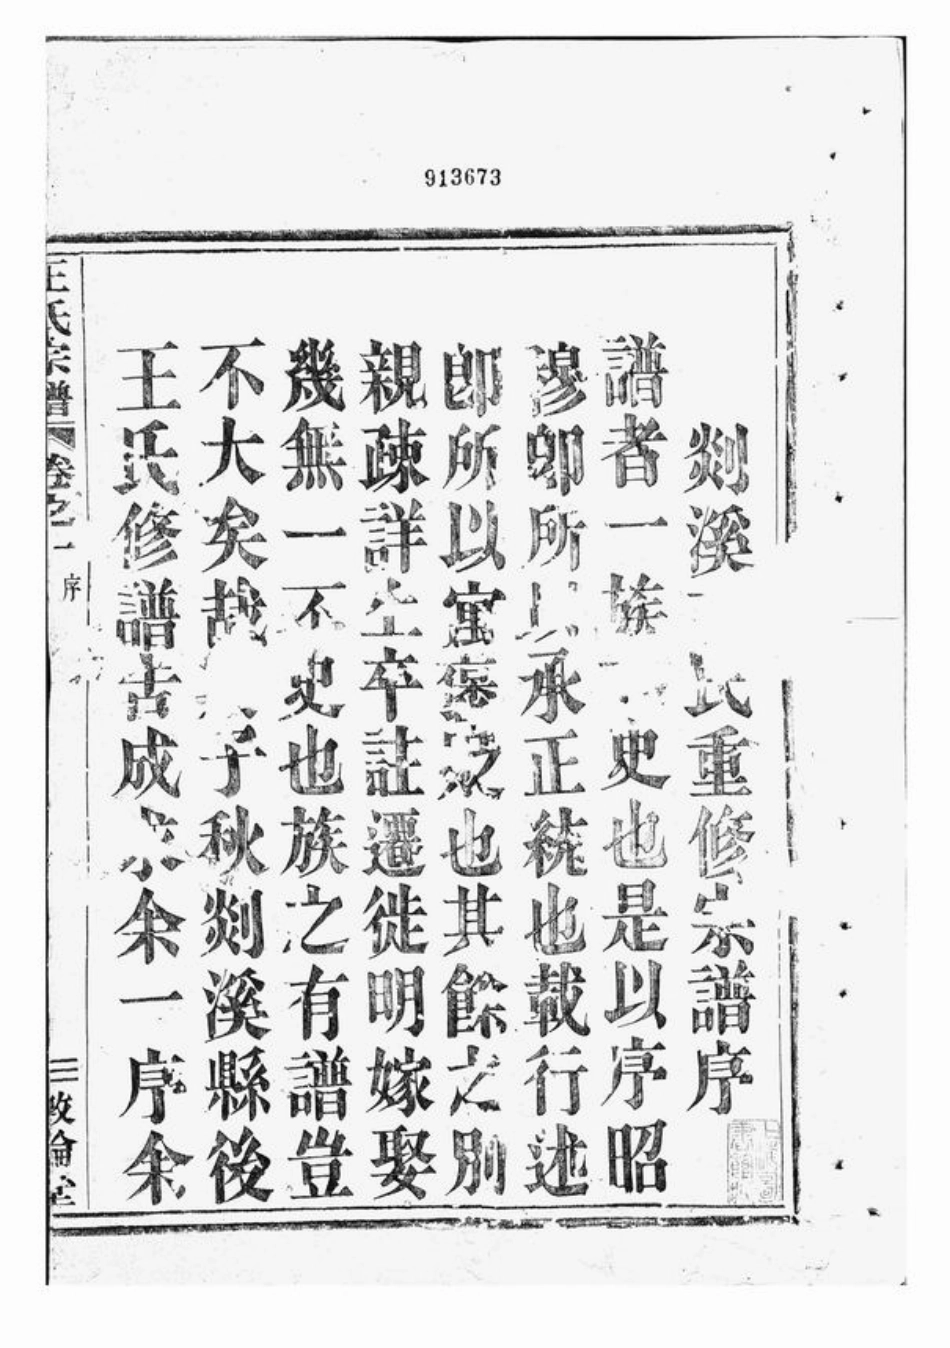 913673
剡溪氏重修宗譜序
譜者一族史也是以序昭
穆卽所以承正統也載行述
卽所以寓褒也其餘之別
親疎詳生卒註遷徙明嫁娶
幾無一不史也族之有譜豈
不大矣哉子秋剡溪縣後
王氏修譜吿成求余一序余
王氏宗譜
卷之一
序
三